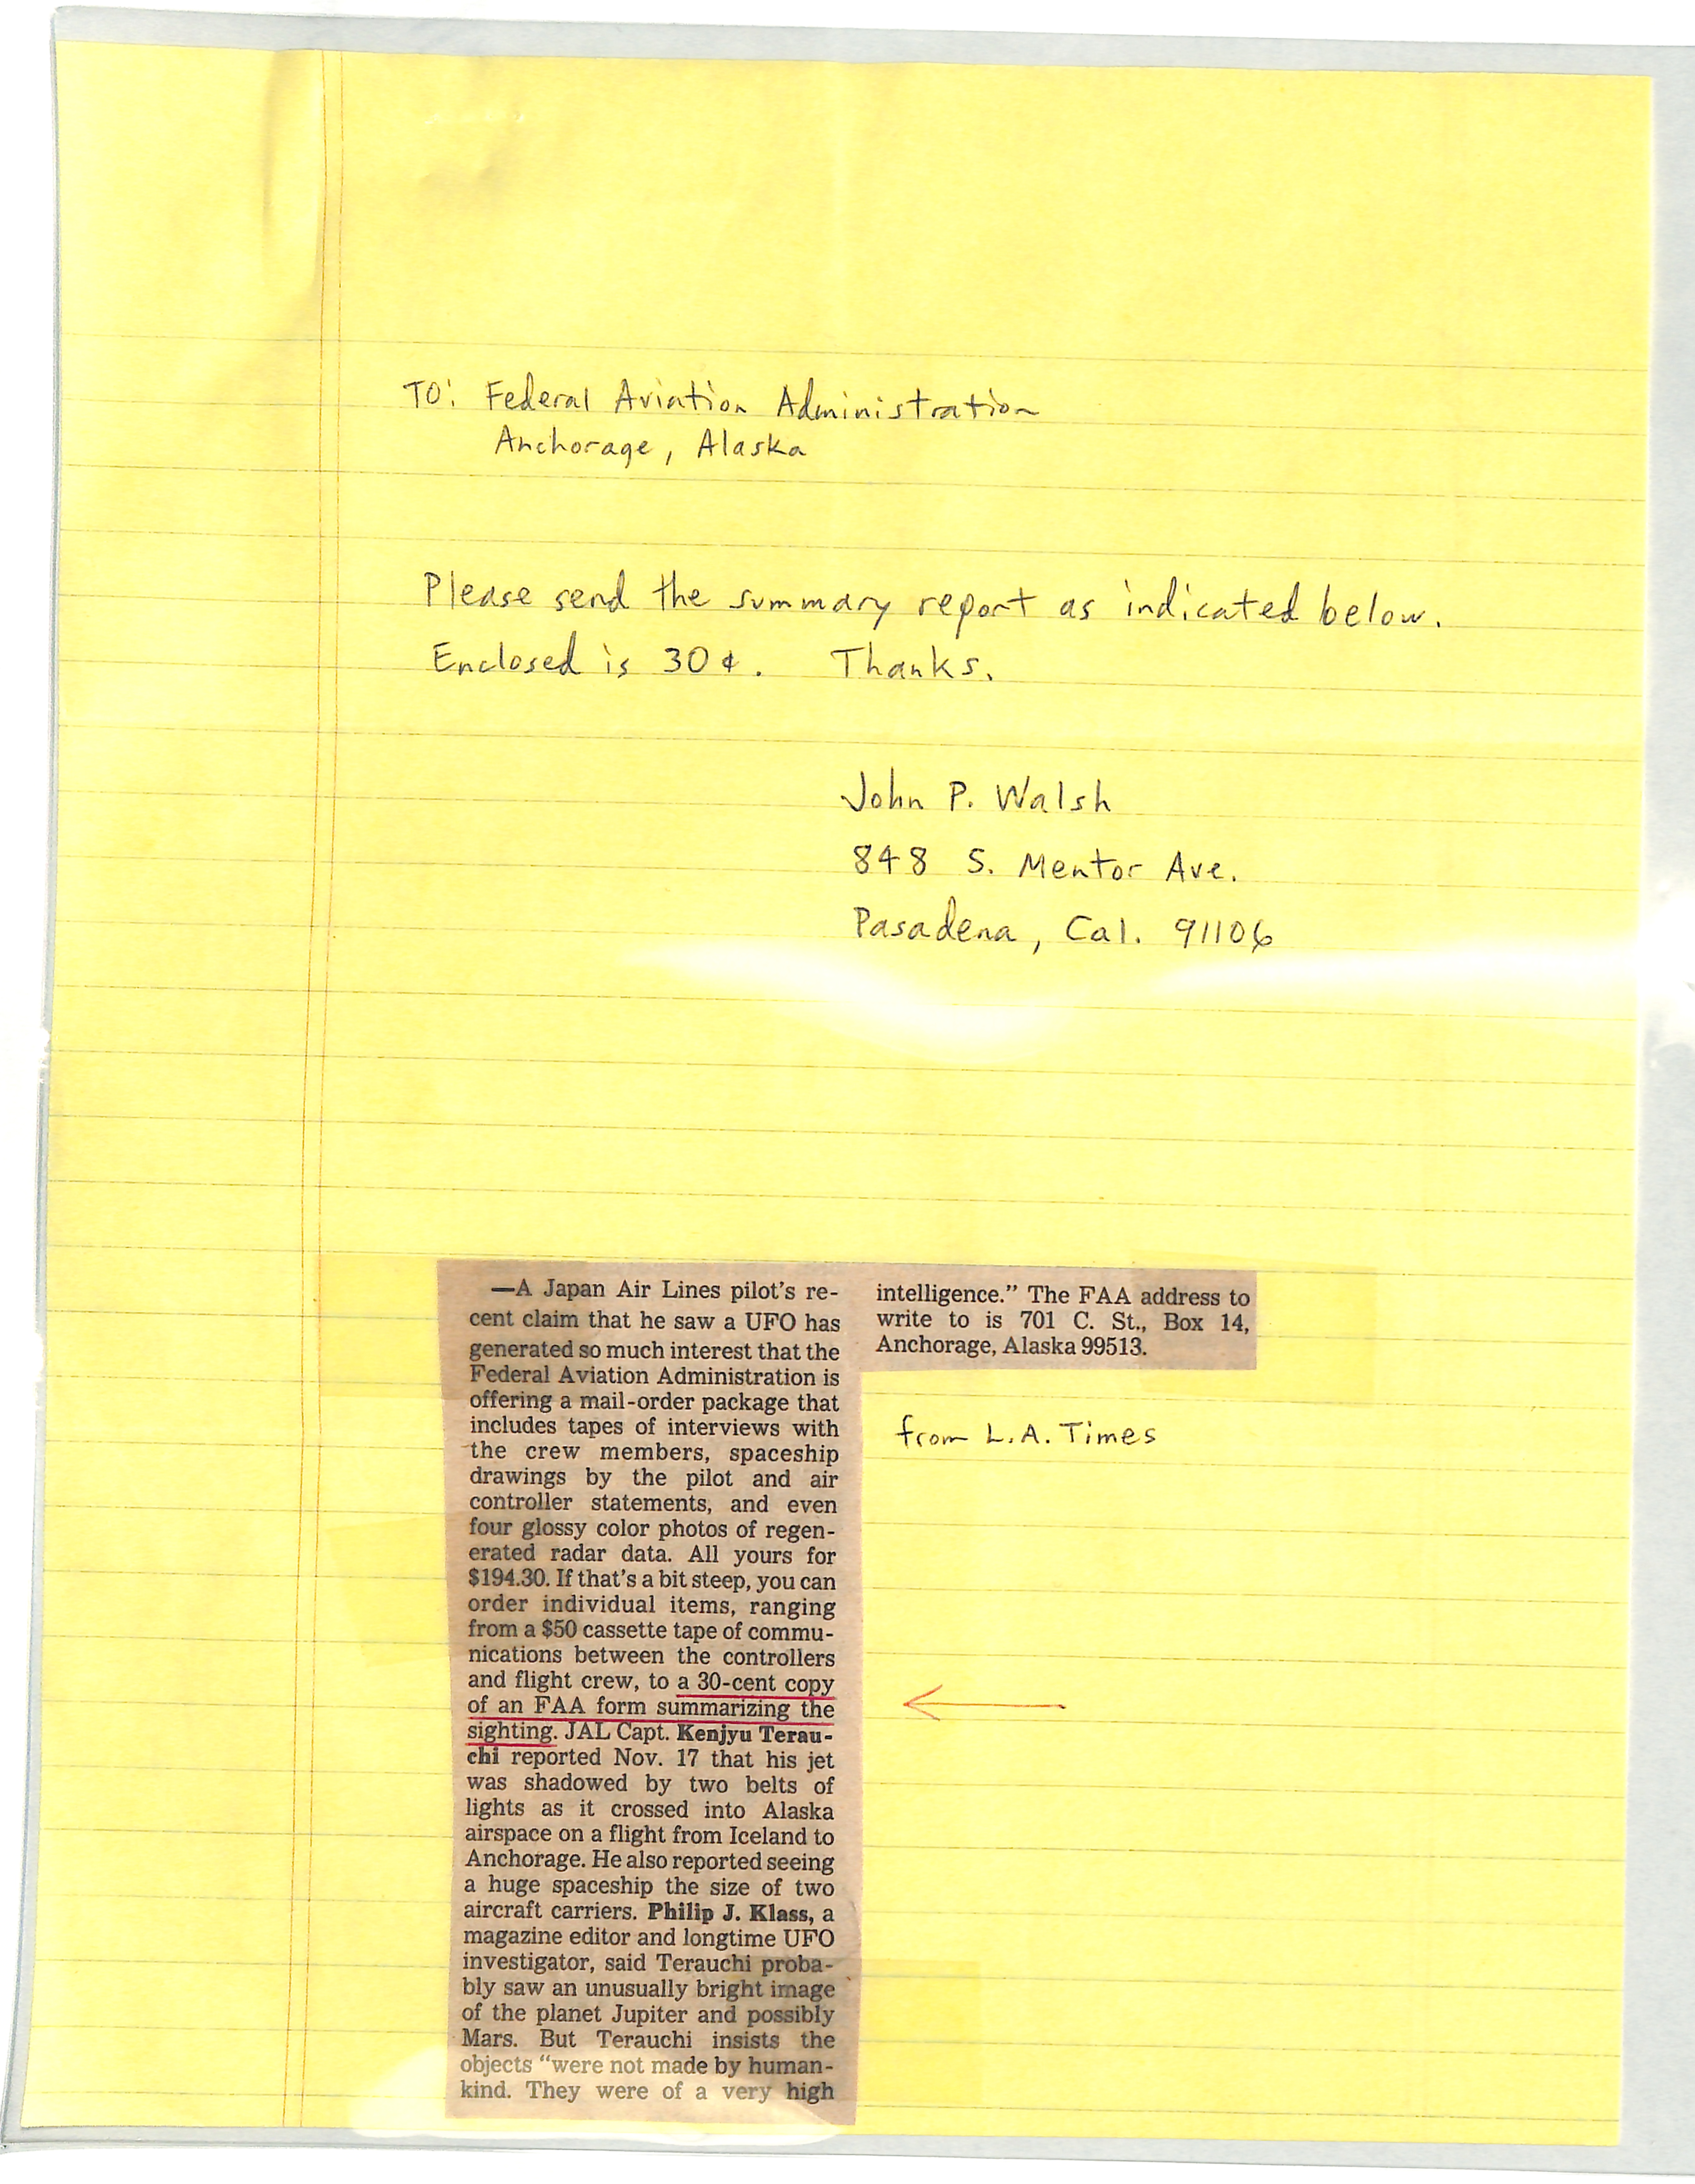 TO: Federal Aviation Administration
Anchorage, Alaska
Please send the summary report as indicated below.
Enclosed is 30¢. Thanks.
John P. Walsh
848 S. Mentor Ave.
Pasadena, Cal. 91106
—A Japan Air Lines pilot's re-
cent claim that he saw a UFO has
generated so much interest that the
Federal Aviation Administration is
offering a mail-order package that
includes tapes of interviews with
the crew members, spaceship
drawings by the pilot and air
controller statements, and even
four glossy color photos of regen-
erated radar data. All yours for
$194.30. If that's a bit steep, you can
order individual items, ranging
from a $50 cassette tape of commu-
nications between the controllers
and flight crew, to a 30-cent copy
of an FAA form summarizing the
sighting. JAL Capt. Kenjyu Terau-
chi reported Nov. 17 that his jet
was shadowed by two belts of
lights as it crossed into Alaska
airspace on a flight from Iceland to
Anchorage. He also reported seeing
a huge spaceship the size of two
aircraft carriers. Philip J. Klass, a
magazine editor and longtime UFO
investigator, said Terauchi proba-
bly saw an unusually bright image
of the planet Jupiter and possibly
Mars. But Terauchi insists the
objects "were not made by human-
kind. They were of a very high
intelligence." The FAA address to
write to is 701 C. St., Box 14,
Anchorage, Alaska 99513.
from L.A. Times